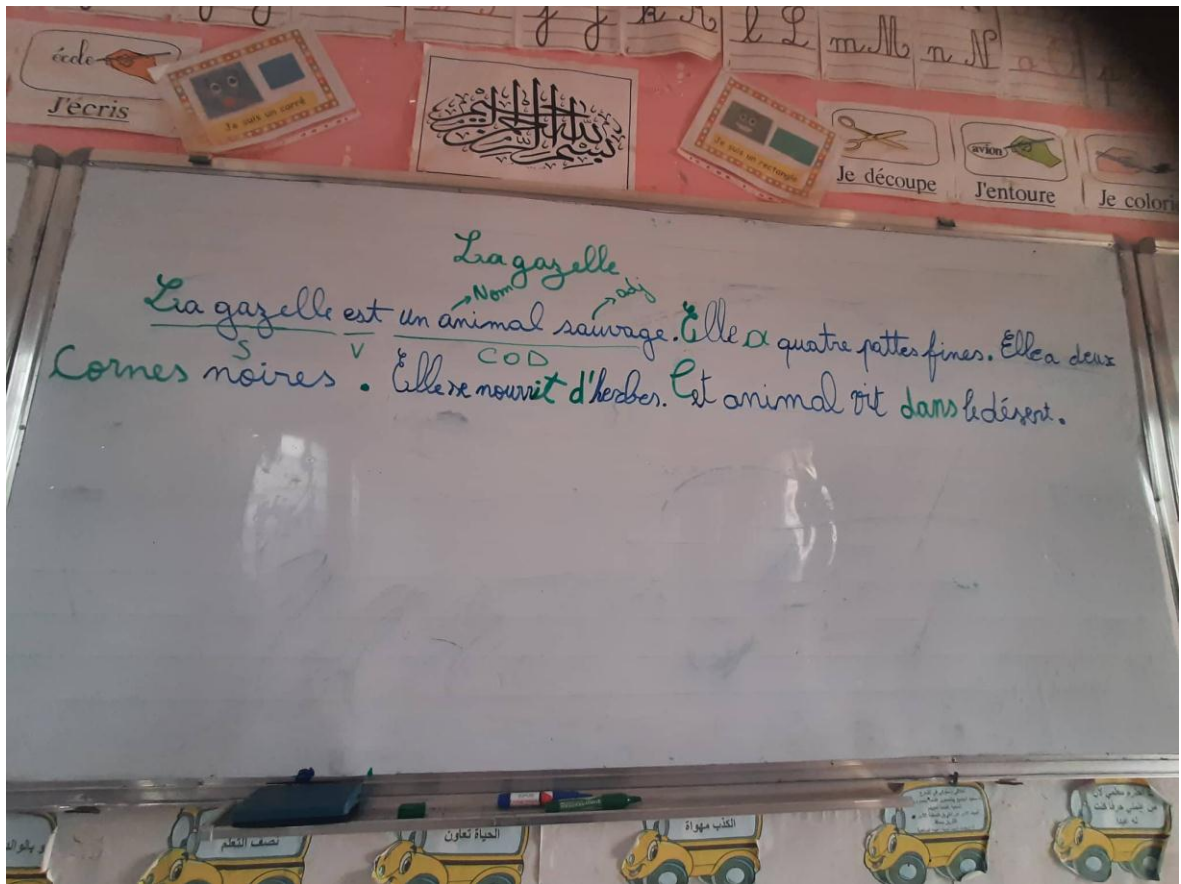 l L
m M
n N
école
J'écris
Je suis un carré
بسم الله الرحمن الرحيم
Je suis un rectangle
Je découpe
avion
J'entoure
Je colorie
La gazelle
Nom adj
La gazelle est un animal sauvage. Elle a quatre pattes fines. Elle a deux
S V COD
Cornes noires. Elle se nourrit d'herbes. Cet animal vit dans le désert.
نصف التعلم
الحياة تعاون
الكذب مهواة